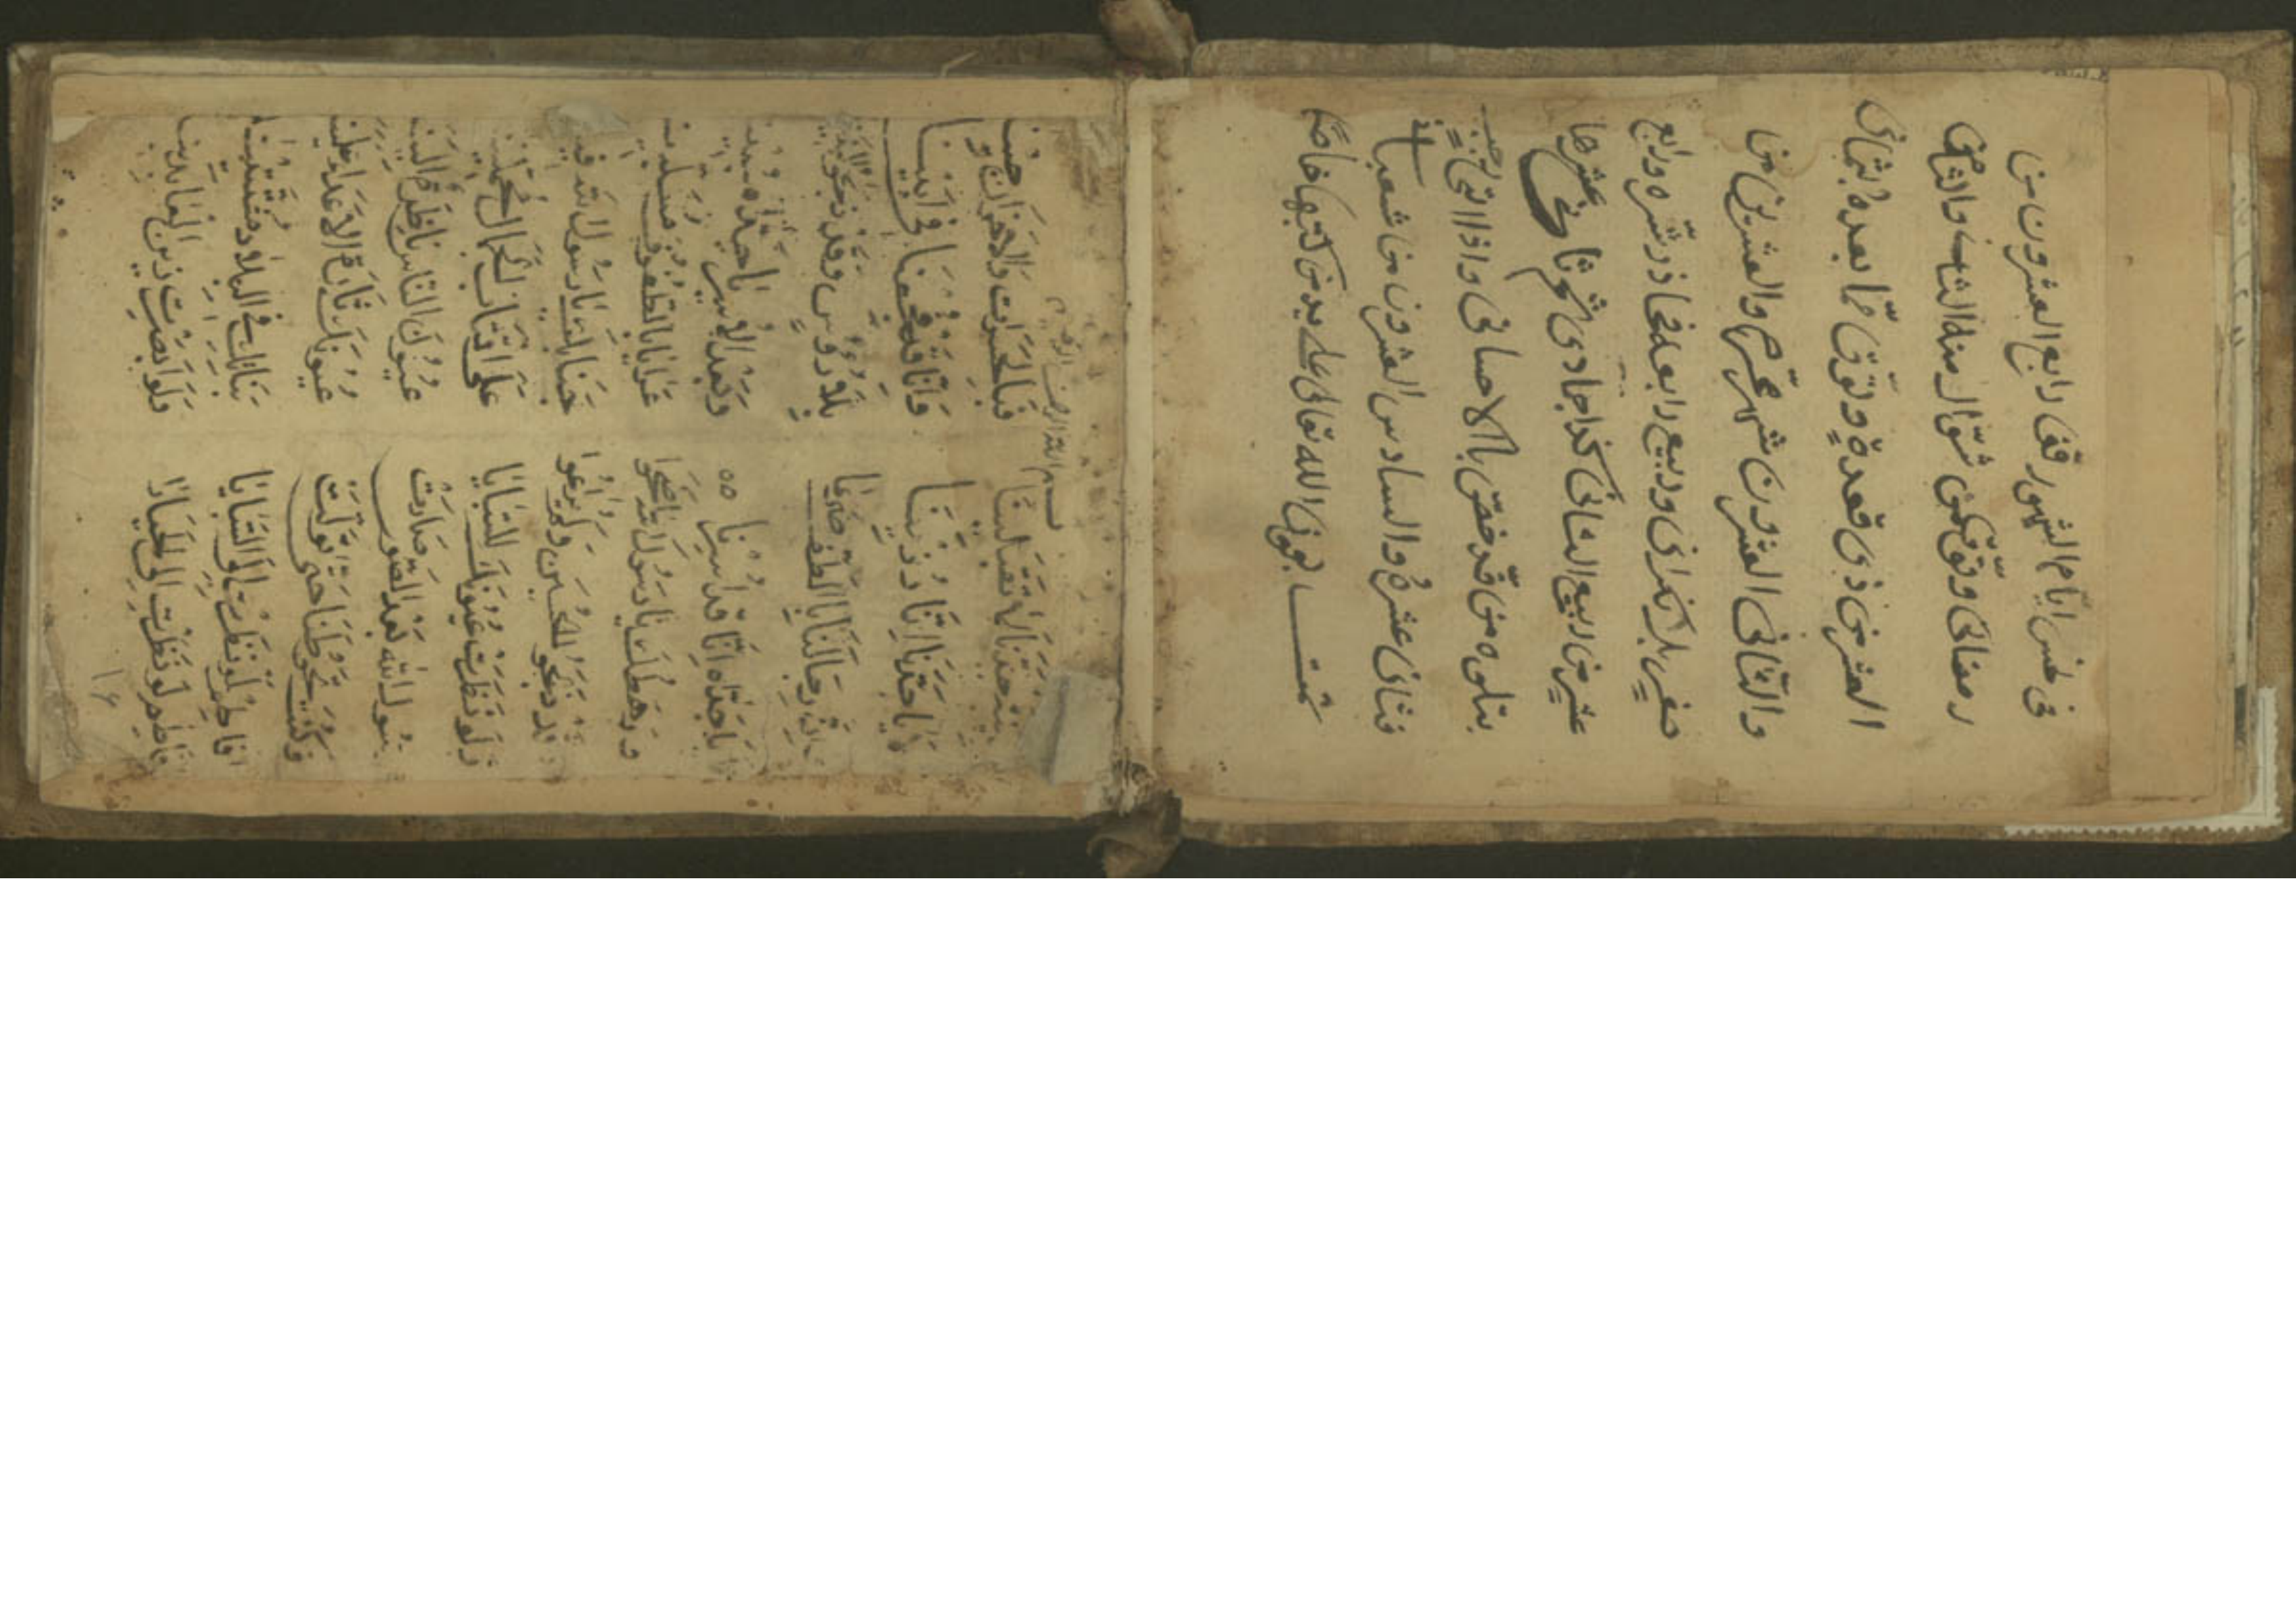 رابع العشرون من
رمضان وتوق من شوال منه الثلث والثامن
العشر من ذى قعدة وتوقّ ممّا بعده بثمانى
والثانى العشرون شهر محرّم والعشرين من
صفرٍ بلا نكرانى وربيع رابعه فحاذر شرّه ورابع
عشرٍ من ربيع الثانى كذا جمادى ثم ثامن عشرها
يتلوه من قد خصّ بالاحسانى واذا اتى رجب
فثانى عشرهُ والسادس العشرون من شعبان
تمت بعون الله تعالى على يد من كتبها
بسم الله الرحمن الرحيم
مدينة جدّنا لا تقبلينا فبالحسرات والاحزان جينا
وانّا قد فجعنا فى ابينا
وانّ رجالنا بالطّف صرعا بلا روس وقد ذبحوا البنينا
يا جدّاه انّا قد اسرنا وبعد الاسر يا جدّاه سبينا
ورهطك يا رسول الله اضحوا عرايا بالطفوف مسلبينا
وقد ذبحوا الحسين ولم يرعوا جنابك يا رسول الله فينا
ولو نظرت عيونك للسبايا على اقتاب الجمال محملينا
رسول الله بعد الصون صارت عيون الناس ناظرة الينا
وكنت تحوطنا حتى تولت عيونك ثارة الاعدا علينا
افاطم لو نظرت الى السبايا بناتك فى البلاد مشتتينا
افاطم لو نظرت الى الحيارا ولو ابصرت زين العابدينا